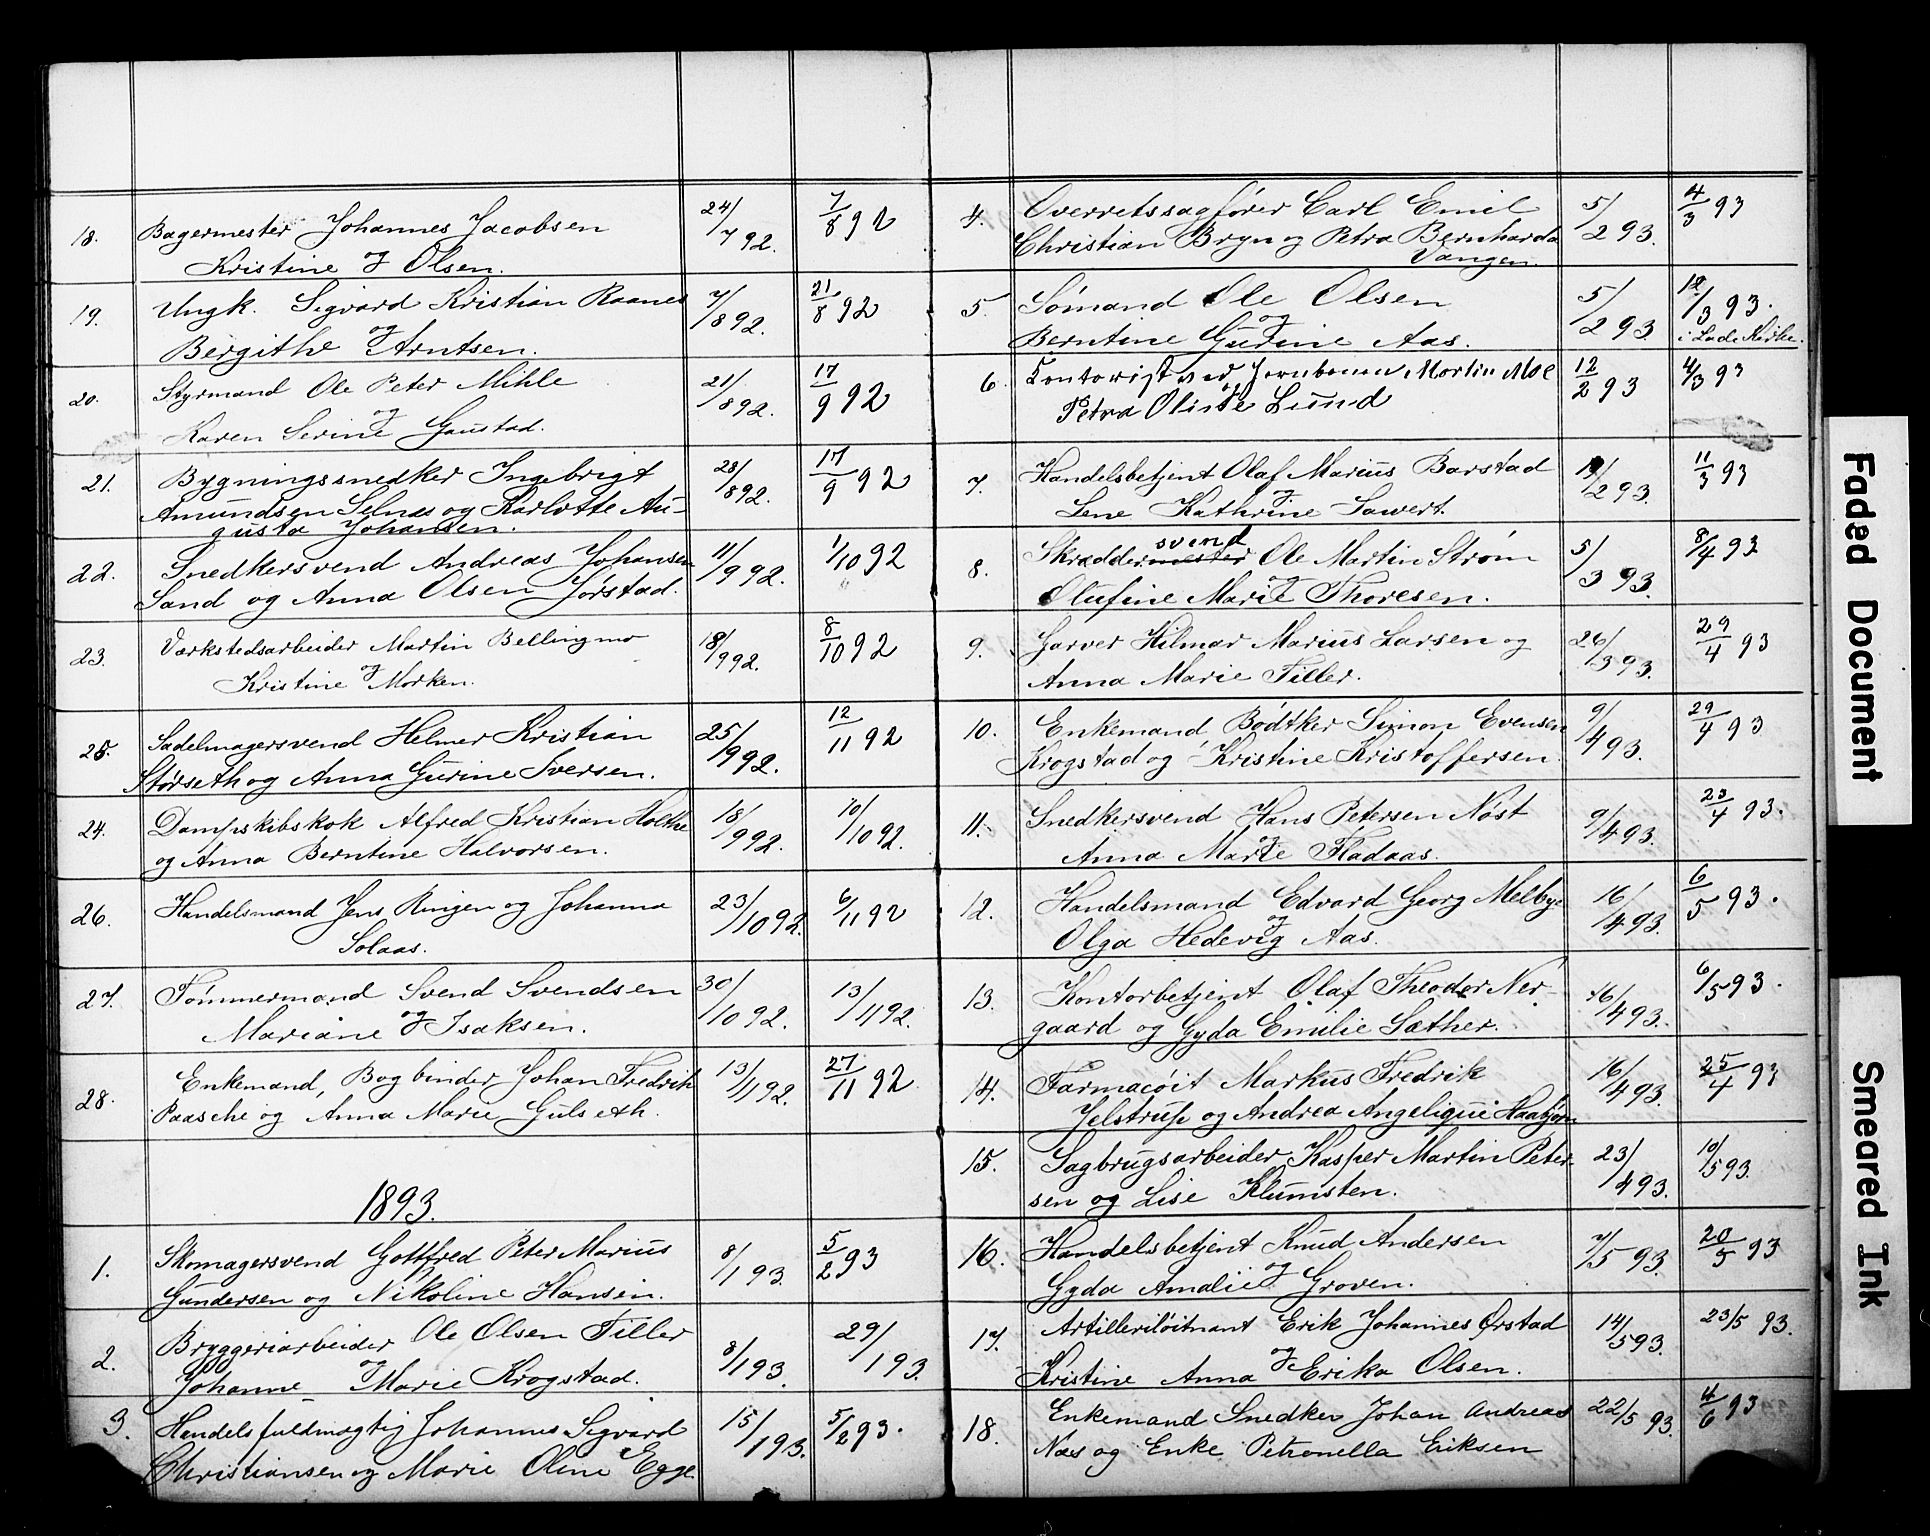 18. Bagermester Johannes Jacobsen 24/7 92. 7/8 92
og
Kristine Olsen.
19. Ungk. Sigvard Kristian Raanes 7/8 92. 21/8 92
og
Bergithe Arntsen.
20. Styrmand Ole Peter Mihle 21/8 92. 17/9 92
og
Karen Serine Gaustad.
21. Bygningssnedker Ingebrigt 28/8 92. 17/9 92
Amundsen Selnes og Karlotte Au-
gusta Johansen.
22. Snedkersvend Andreas Johansen 11/9 92. 1/10 92
Sand og Anna Olsen Jørstad.
23. Værkstedsarbeider Martin Bellingmo 18/9 92. 8/10 92
Kristine og Morken.
25. Sadelmagersvend Helmer Kristian 25/9 92. 12/11 92
Størseth og Anna Gurine Iversen.
24. Dampskibskok Alfred Kristian Holthe 18/9 92. 10/10 92.
og Anna Berntine Halvorsen.
26. Handelsmand Jens Ringen og Johanna 23/10 92. 6/11 92
Solaas.
27. Tømmermand Svend Svendsen 30/10 92. 13/11 92.
Mariane og Isaksen.
28. Enkemand, Bogbinder Johan Fredrik 13/11 92. 27/11 92.
Paasche og Anna Marie Gulseth.
1893.
1. Skomagersvend Gottfred Peter Marius 8/1 93. 5/2 93
Gundersen og Nikoline Hansen.
2. Bryggeriarbeider Ole Olsen Tiller 8/1 93. 29/1 93.
og
Johanne Marie Krogstad.
3. Handelsfuldmægtig Johannes Sigvard 15/1 93. 5/2 93.
Christiansen og Marie Oline Egge
4. Overretssagfører Carl Emil 5/2 93. 4/3 93
Christian Bryn og Petra Bernharda
Vangen.
5. Sømand Ole Olsen 5/2 93. 12/3 93.
og i Lade Kirke.
Berntine Gurine Aas.
6. Kontorist ved Jernbanen Martin Moe 12/2 93 4/3 93
og
Petra Oliste Lund
7. Handelsbetjent Olaf Marius Barstad 19/2 93. 11/3 93
og
Lene Kathrine Lawert.
svend
8. Skræddermester Ole Martin Strøm 5/3 93. 8/4 93
og
Olufine Marie Thoresen.
9. Garver Hilmar Marius Larsen og 26/3 93. 29/4 93
Anna Marie Tiller.
10. Enkemand Bødtker Simon Evensen 9/4 93. 29/4 93
Krogstad og Kristine Kristoffersen.
11. Snedkersvend Hans Petersen Nøst 9/4 93. 23/4 93.
og
Anna Marie Fladaas.
12. Handelsmand Edvard Georg Melbye 16/4 93. 6/5 93.
og
Olga Hedevig Aas.
13. Kontorbetjent Olaf Theodor Ner- 16/4 93. 6/5 93.
gaard og Gyda Emilie Sæther.
14. Farmacøit Markus Fredrik 16/4 93. 25/4 93
Jelstrup og Andrea Angelique Haabjørn
15. Sagbrugsarbeider Kasper Martin Peter- 23/4 93. 10/5 93.
sen og Lise Klumsten.
16. Handelsbetjent Knud Andersen 7/5 93. 20/5 93
og
Gyda Amalie Groven.
17. Artilleriløitnant Erik Johannes Ørstad 14/5 93. 23/5 93.
og
Kristine Anna Erika Olsen.
18. Enkemand Snedker Johan Andreas 22/5 93. 4/6 93
Næs og Enke Petronella Eriksen
Faded Document
Smeared Ink